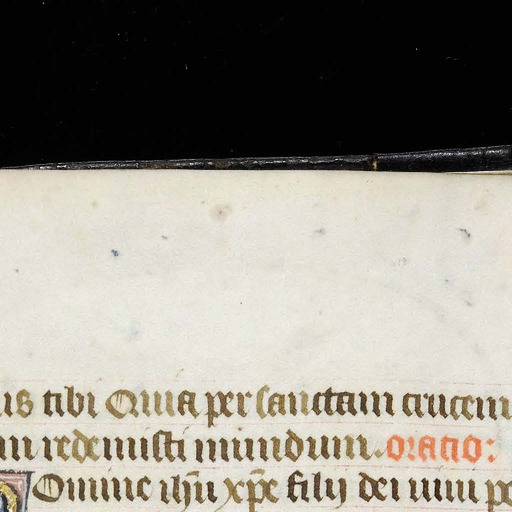 us tibi Quia per sanctam crucem
m redemisti mundum. oratio:
Omine ihū xp̄e filij dei uiui po